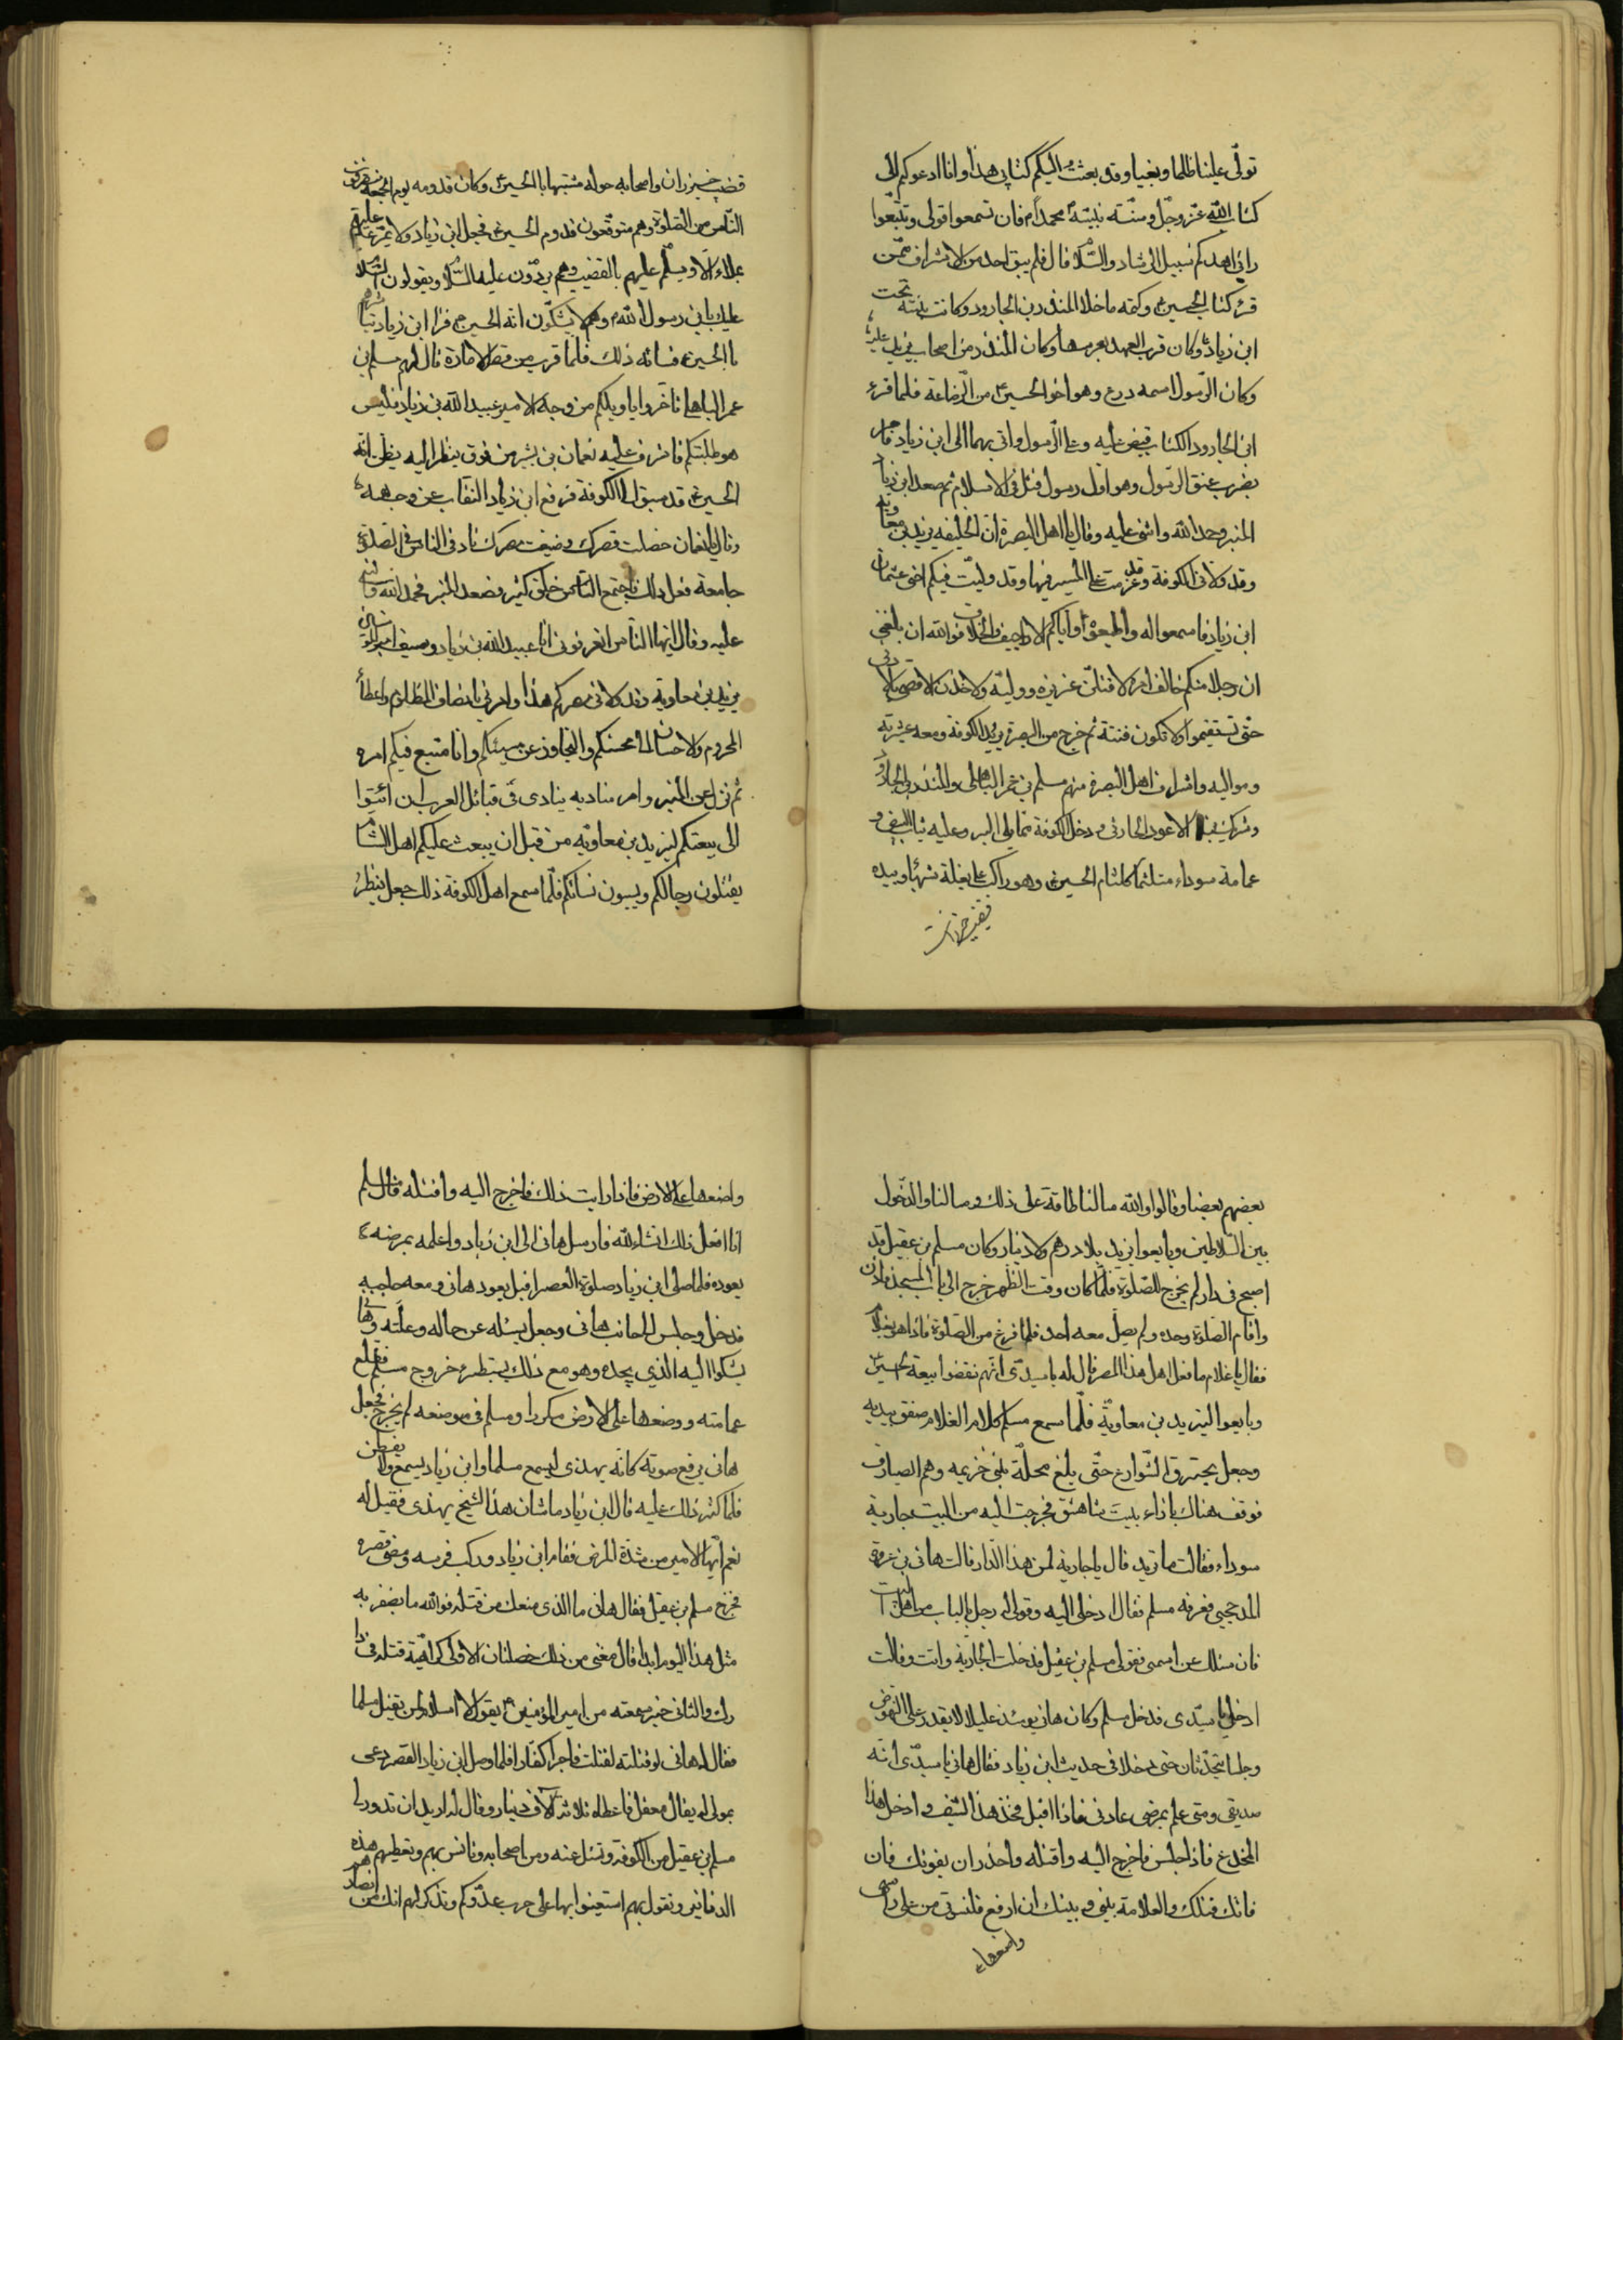 تولّى علينا ظلما وبغيا وقد بعثت اليكم كتابى هذا وانا ادعوكم الى
كتاب اللّه عزّ وجلّ وسنّته نبيّه محمد ام فان تسمعوا قولى وتتبّعوا
رائى اهدكم سبيل الرشاد والسّلام قال فلم يبق احد من الاشراف ممّن
قرء كتاب الحسين ع وكتمه ماخلا المنذر بن الجارود وكانت بنته تحت
ابن زياد وكان قرب العهد بعرسها وكان المنذر من اصحاب يزيد عليه
وكان الرّسول اسمه درع وهو اخو الحسين ع من الرّضاعة فلما قرء
ابن الجارود الكتاب قبض عليه وعلى الرّسول واتى بهما الى ابن زياد فامر
بضرب عنق الرّسول وهو اوّل رسول قتل فى الاسلام ثم صعد ابن زياد
المنبر وحمد اللّه واثنى عليه وقال يا اهل البصرة ان الخليفه يزيد بن معاوية
وقد ولانى الكوفة وقد عزمت على المسير فيها وقد وليّت فيكم اخى عثمان
ابن زياد فاسمعوا له واطيعوه واياكم الاراجيف والخلاف فو اللّه ان بلغنى
ان رجلا منكم خالف امره لاقتلنّ عزيزه ووليّه ولاخذن الاقصى بالادنى
حتّى تستقيموا ولا تكون فتنة ثم خرج من البصرة يريد الكوفة ومعه عشيرته
ومواليه واشراف اهل البصرة منهم مسلم بن عمر الباهلى والمنذر بن الجارود
وشريك بن الاعور الحارثى ودخل الكوفة مما يلى البر وعليه ثياب بيض و
عمامة سوداء متلثما كلثام الحسين ع وهو راكب على بغلة شهباء وبيده
قضيب خيزران
قضيب خيزران واصحابه حوله متشبها بالحسين ع وكان قدومه يوم الجمعة وقد انصرف
النّاس من الصّلوة وهم متوقّعون قدوم الحسين ع فجعل ابن زياد ولا يمرّ عليهم
بملاء الاّ ويسلّم عليهم بالقضيب وهم يردّون عليه السّلام ويقولون السّلام
عليك يابن رسول اللّه وهم لا يشكّون انه الحسين ع فراى ابن زياد تباشرهم
بالحسين ع فسائه ذلك فلمّا قرب من قصر الامارة قال لهم مسلم بن
عمر الباهلى تاخّروا يا ويلكم من وجه الامير عبيد اللّه بن زياد فليس
هو طلبتكم فاشرف عليه نعمان بن بشير من فوق ينظر اليه يظن انه
الحسين ع قد سبق الى الكوفة فرفع ابن زياد النقاب عن وجهه
وقال يا نعمان حصلت قصرك وضيعت مصرك ناد فى الناس فى الصلوة
جامعة ففعل ذلك فاجتمع النّاس خلق كثير فصعد المنبر فحمد اللّه واثنى
عليه وقال ايها النّاس اتعرفونى انا عبيد اللّه بن زياد
يزيد بن معاوية وقد ولانى مصركم هذا وامرنى بانصاف المظلوم واعطاء
المحروم والاحسان الى محسنكم والتجاوز عن مسيئكم وانا متبع فيكم امره
ثم نزل عن المنبر وامر مناديه ينادى فى قبائل العرب ان اثبتوا
الى بيعتكم ليزيد بن معاوية من قبل ان يبعث عليكم اهل الشام
يقتلون رجالكم ويسبون نسائكم فلّما سمع اهل الكوفة ذلك جعل ينظر
بعضهم بعضا وقالوا واللّه مالنا طاقة على ذلك ومالنا والدّخول
بين السّلاطين وبايعوا يزيد بلا درهم ولا دينار وكان مسلم بن عقيل قد
اصبح فى دار لم يخرج للصّلوة فلمّا كان وقت الظّهر خرج الى باب المسجد فاذن
واقام الصّلوة وحده ولم يصلّ معه احد فلما فرغ من الصّلوة فاذا هو بغلام
فقال يا غلام ما فعل اهل هذا المصر قال له يا سيدى انّهم نقضوا بيعة الحسين ع
وبايعوا ليزيد بن معاوية فلّما سمع مسلم كلام الغلام صفق بيديه
وجعل يخترق الشّوارع حتّى بلغ محلّة بنى خزيمه وهم انصاره
فوقف هناك بازاء بيت شاهق فخرجت اليه من البيت جارية
سوداء فقالت ما تريد قال يا جارية لمن هذا الدّار قالت هانى بن عروة
المدحجى فعرفه مسلم فقال ادخلى اليه وقولى له رجل بالباب من اهل البيت
فان سئلك عن اسمى فقولى مسلم بن عقيل فدخلت الجارية واتت وقالت
ادخل يا سيّدى فدخل مسلم وكان هانى يومئذ عليلا لا يقدر على النهوض
وجلسا يتحدّثان حتى دخلا فى حديث ابن زياد فقال هانى يا سيدّى انه
صديقى ومتى علم بمرضى عادنى فاذا اقبل فخذ هذا السّيف وادخل هذا
المخدع فاذا جلس فاخرج اليه واقتله واحذر ان يفوتك فان
فاتك قتلك والعلامة بينى وبينك ان ارفع قلنسوتى من على راسى
واضعها
واضعها على الارض فاذا رايت ذلك فاخرج اليه واقتله قال مسلم
انا افعل ذلك انشاء اللّه فارسل هانى الى ابن زياد واعلمه بمرضه
يعوده فلما صلى ابن زياد صلوة العصر اقبل يعود هانى ومعه حاجبه
فدخل وجلس الى جانب هانى وجعل يسئله عن حاله وعلّته وهانى
يشكوا اليه الذي يجده وهو مع ذلك يستبطىء خروج مسلم فقلع
عمامته ووضعها على الارض مكررا ومسلم فى موضعه لم يخرج فجعل
هانى يرفع صوته كانّه يهذى ليسمع مسلما وابن زياد يسمع ولا يفطن
فلما كثر ذلك عليه قال ابن زياد ما شان هذا الشيخ يهذى فقيل له
نعم ايّها الامير من شدّة المرض فقام ابن زياد وركب فرسه ومضى قصره
فخرج مسلم بن عقيل فقال هانى ما الذى منعك من قتله فو اللّه ما يضفر به
مثل هذا اليوم ابدا قال منعنى من ذلك خصلتان الاولى كراهية قتله فى دا
رك والثانى خبر سمعته من امير المؤمنين ع يقول لا اسلام لمن يقتل مسلما
فقال له هانى لو قتلته لقتلت فاجرا كفّارا فلما وصل ابن زياد القصر دعى
بمولى له يقال معقل فاعطاه ثلاثة الاف دينار وقال له اريد ان تدور لى
مسلم بن عقيل من الكوفة وتسئل عنه ومن اصحابه وتانس بهم وتعطيهم هذه
الدنانير وتقول لهم استعينوا بها على حرب عدّوكم وتذكر لهم انك من انصارهم